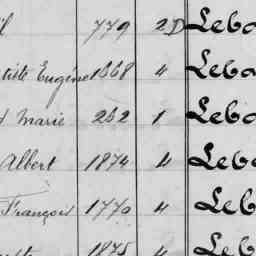 779 2D Lebo
Eugène 1668 4 Leba
Marie 262 1 Leba
Albert 1874 4 Leb
François 1770 4 Leb
1875 4 Leb